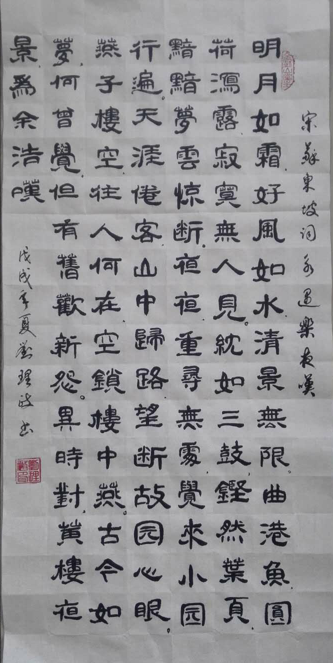 宋蘇東坡词永遇樂夜嘆
明月如霜好風如水清景無限曲港魚圓
荷瀉露寂寞無人見。紞如三鼓鏗然葉頁
黯黯夢雲惊断夜夜重尋無處覺來小园
行遍天涯倦客山中歸路望断故园心眼。
燕子樓空佳人何在空鎖樓中燕。古今如
夢何曾覺但有舊歡新怨。異時對黄樓夜
景為余浩嘆
戊戌年夏劉理政书